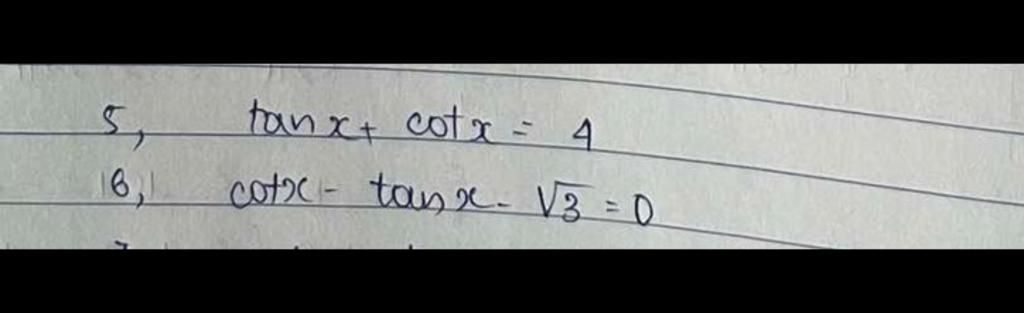 5, tan x + cot x = 4
6, cot x - tan x - √3 = 0